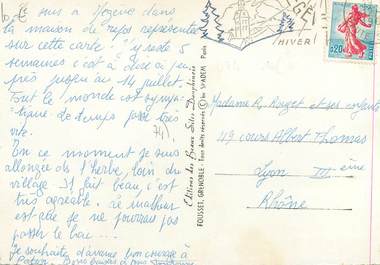 Je suis à Yozera dans
la maison de repos représentée
sur cette carte. J'y reste 5
semaines c'est à dire à peu
près jusqu'au 14 juillet.
Tout le monde est sympa-
-tique le temps passe très
vite.
En ce moment je suis
allongée ds l'herbe, loin du
village. Il fait beau, c'est
très agréable. Le malheur
est que je ne pourrais pas
passer le bac...
Je souhaite d'avance bon courage à
Bons baisers à tous
Editions des Beaux Sites Dauphinois
FOUSSET, GRENOBLE - Tous droits réservés © by SPADEM Paris
HIVER
0,20
Madame R. Rouget et ses enfants
119 cours Albert Thomas
Lyon IIIème
Rhône